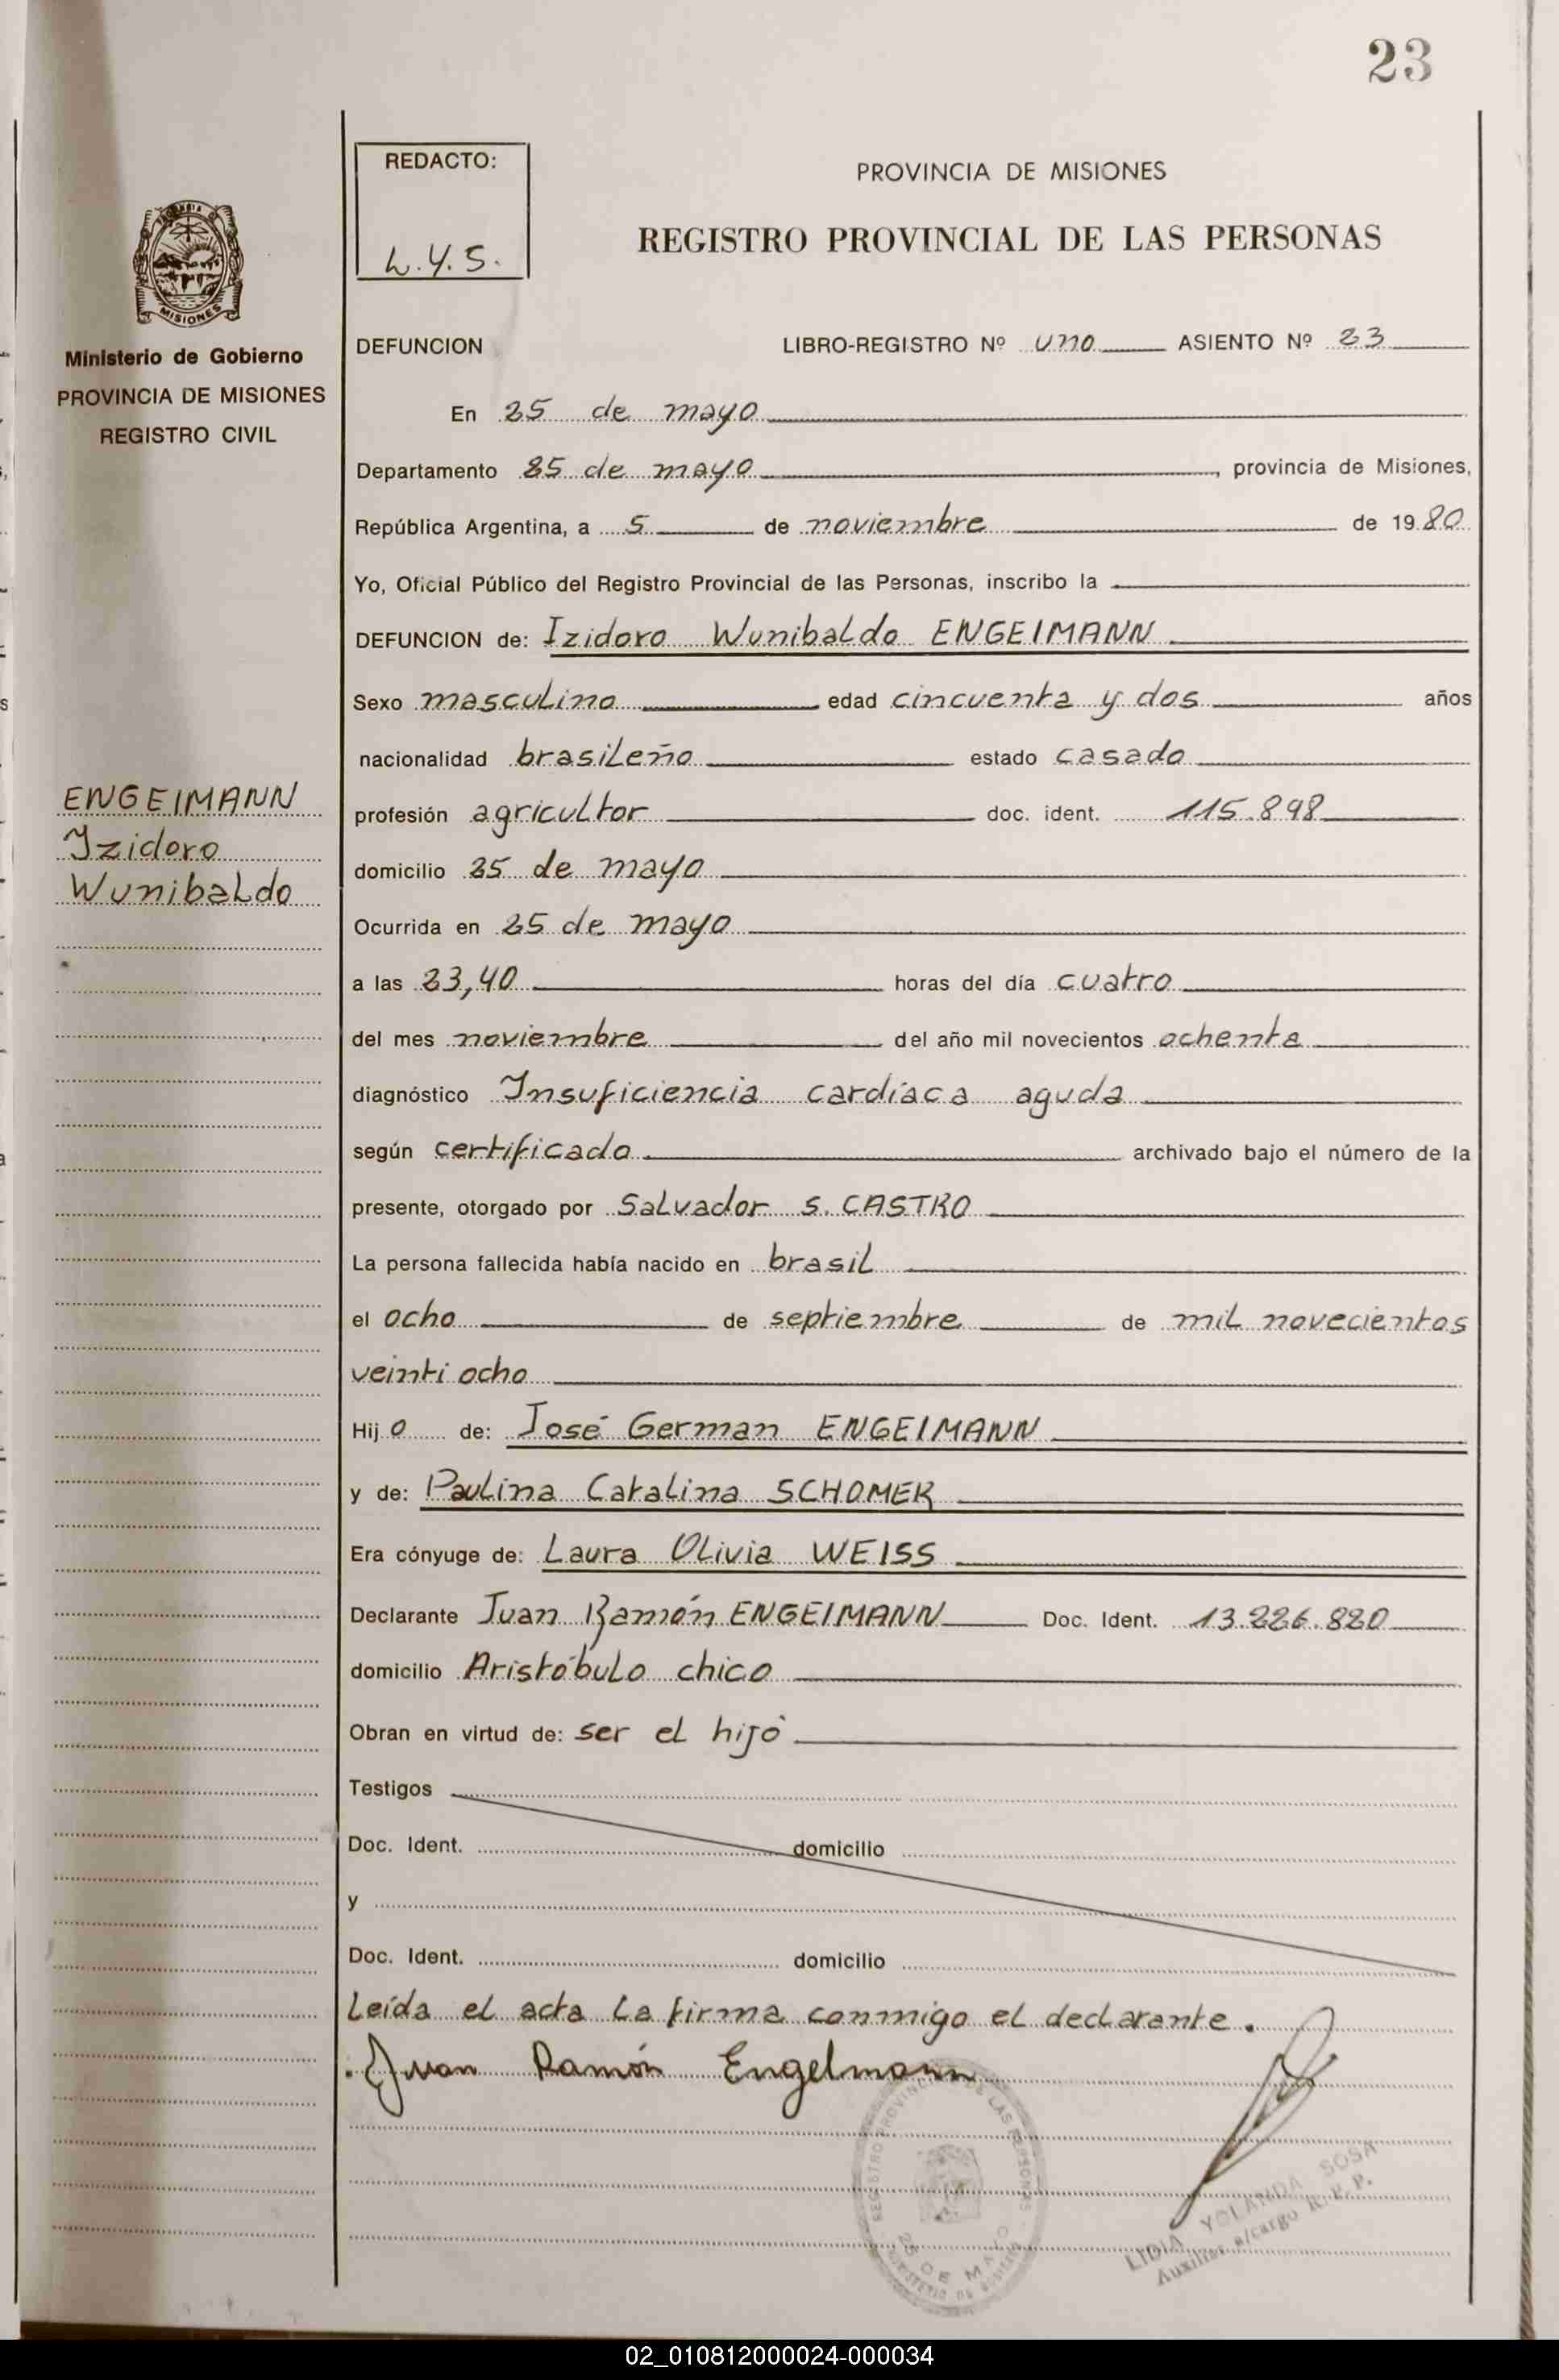 23
REDACTO:
L.Y.S.
PROVINCIA DE MISIONES
REGISTRO PROVINCIAL DE LAS PERSONAS
MISIONES
Ministerio de Gobierno
PROVINCIA DE MISIONES
REGISTRO CIVIL
DEFUNCION LIBRO-REGISTRO Nº uno ASIENTO Nº 23
En 25 de mayo
Departamento 25 de mayo, provincia de Misiones,
República Argentina, a 5 de noviembre de 1980
Yo, Oficial Público del Registro Provincial de las Personas, inscribo la
DEFUNCION de: Izidoro Wunibaldo ENGEIMANN
Sexo masculino edad cincuenta y dos años
nacionalidad brasileño estado casado
ENGEIMANN
Izidoro
Wunibaldo
profesión agricultor doc. ident. 115.898
domicilio 25 de mayo
Ocurrida en 25 de mayo
a las 23,40 horas del día cuatro
del mes noviembre del año mil novecientos ochenta
diagnóstico Insuficiencia cardíaca aguda
según certificado archivado bajo el número de la
presente, otorgado por Salvador S. CASTRO
La persona fallecida había nacido en brasil
el ocho de septiembre de mil novecientos
veinti ocho
Hijo de: José German ENGEIMANN
y de: Paulina Catalina SCHOMER
Era cónyuge de: Laura Olivia WEISS
Declarante Juan Ramón ENGEIMANN Doc. Ident. 13.226.820
domicilio Aristóbulo chico
Obran en virtud de: ser el hijo
Testigos
Doc. Ident. domicilio
y
Doc. Ident. domicilio
Leída el acta la firma conmigo el declarante.
Juan Ramón Engelmann
REGISTRO PROVINCIAL DE LAS PERSONAS
25 DE MAYO
LIDIA YOLANDA SOSA
Auxiliar a/cargo R.P.P.
02_010812000024-000034